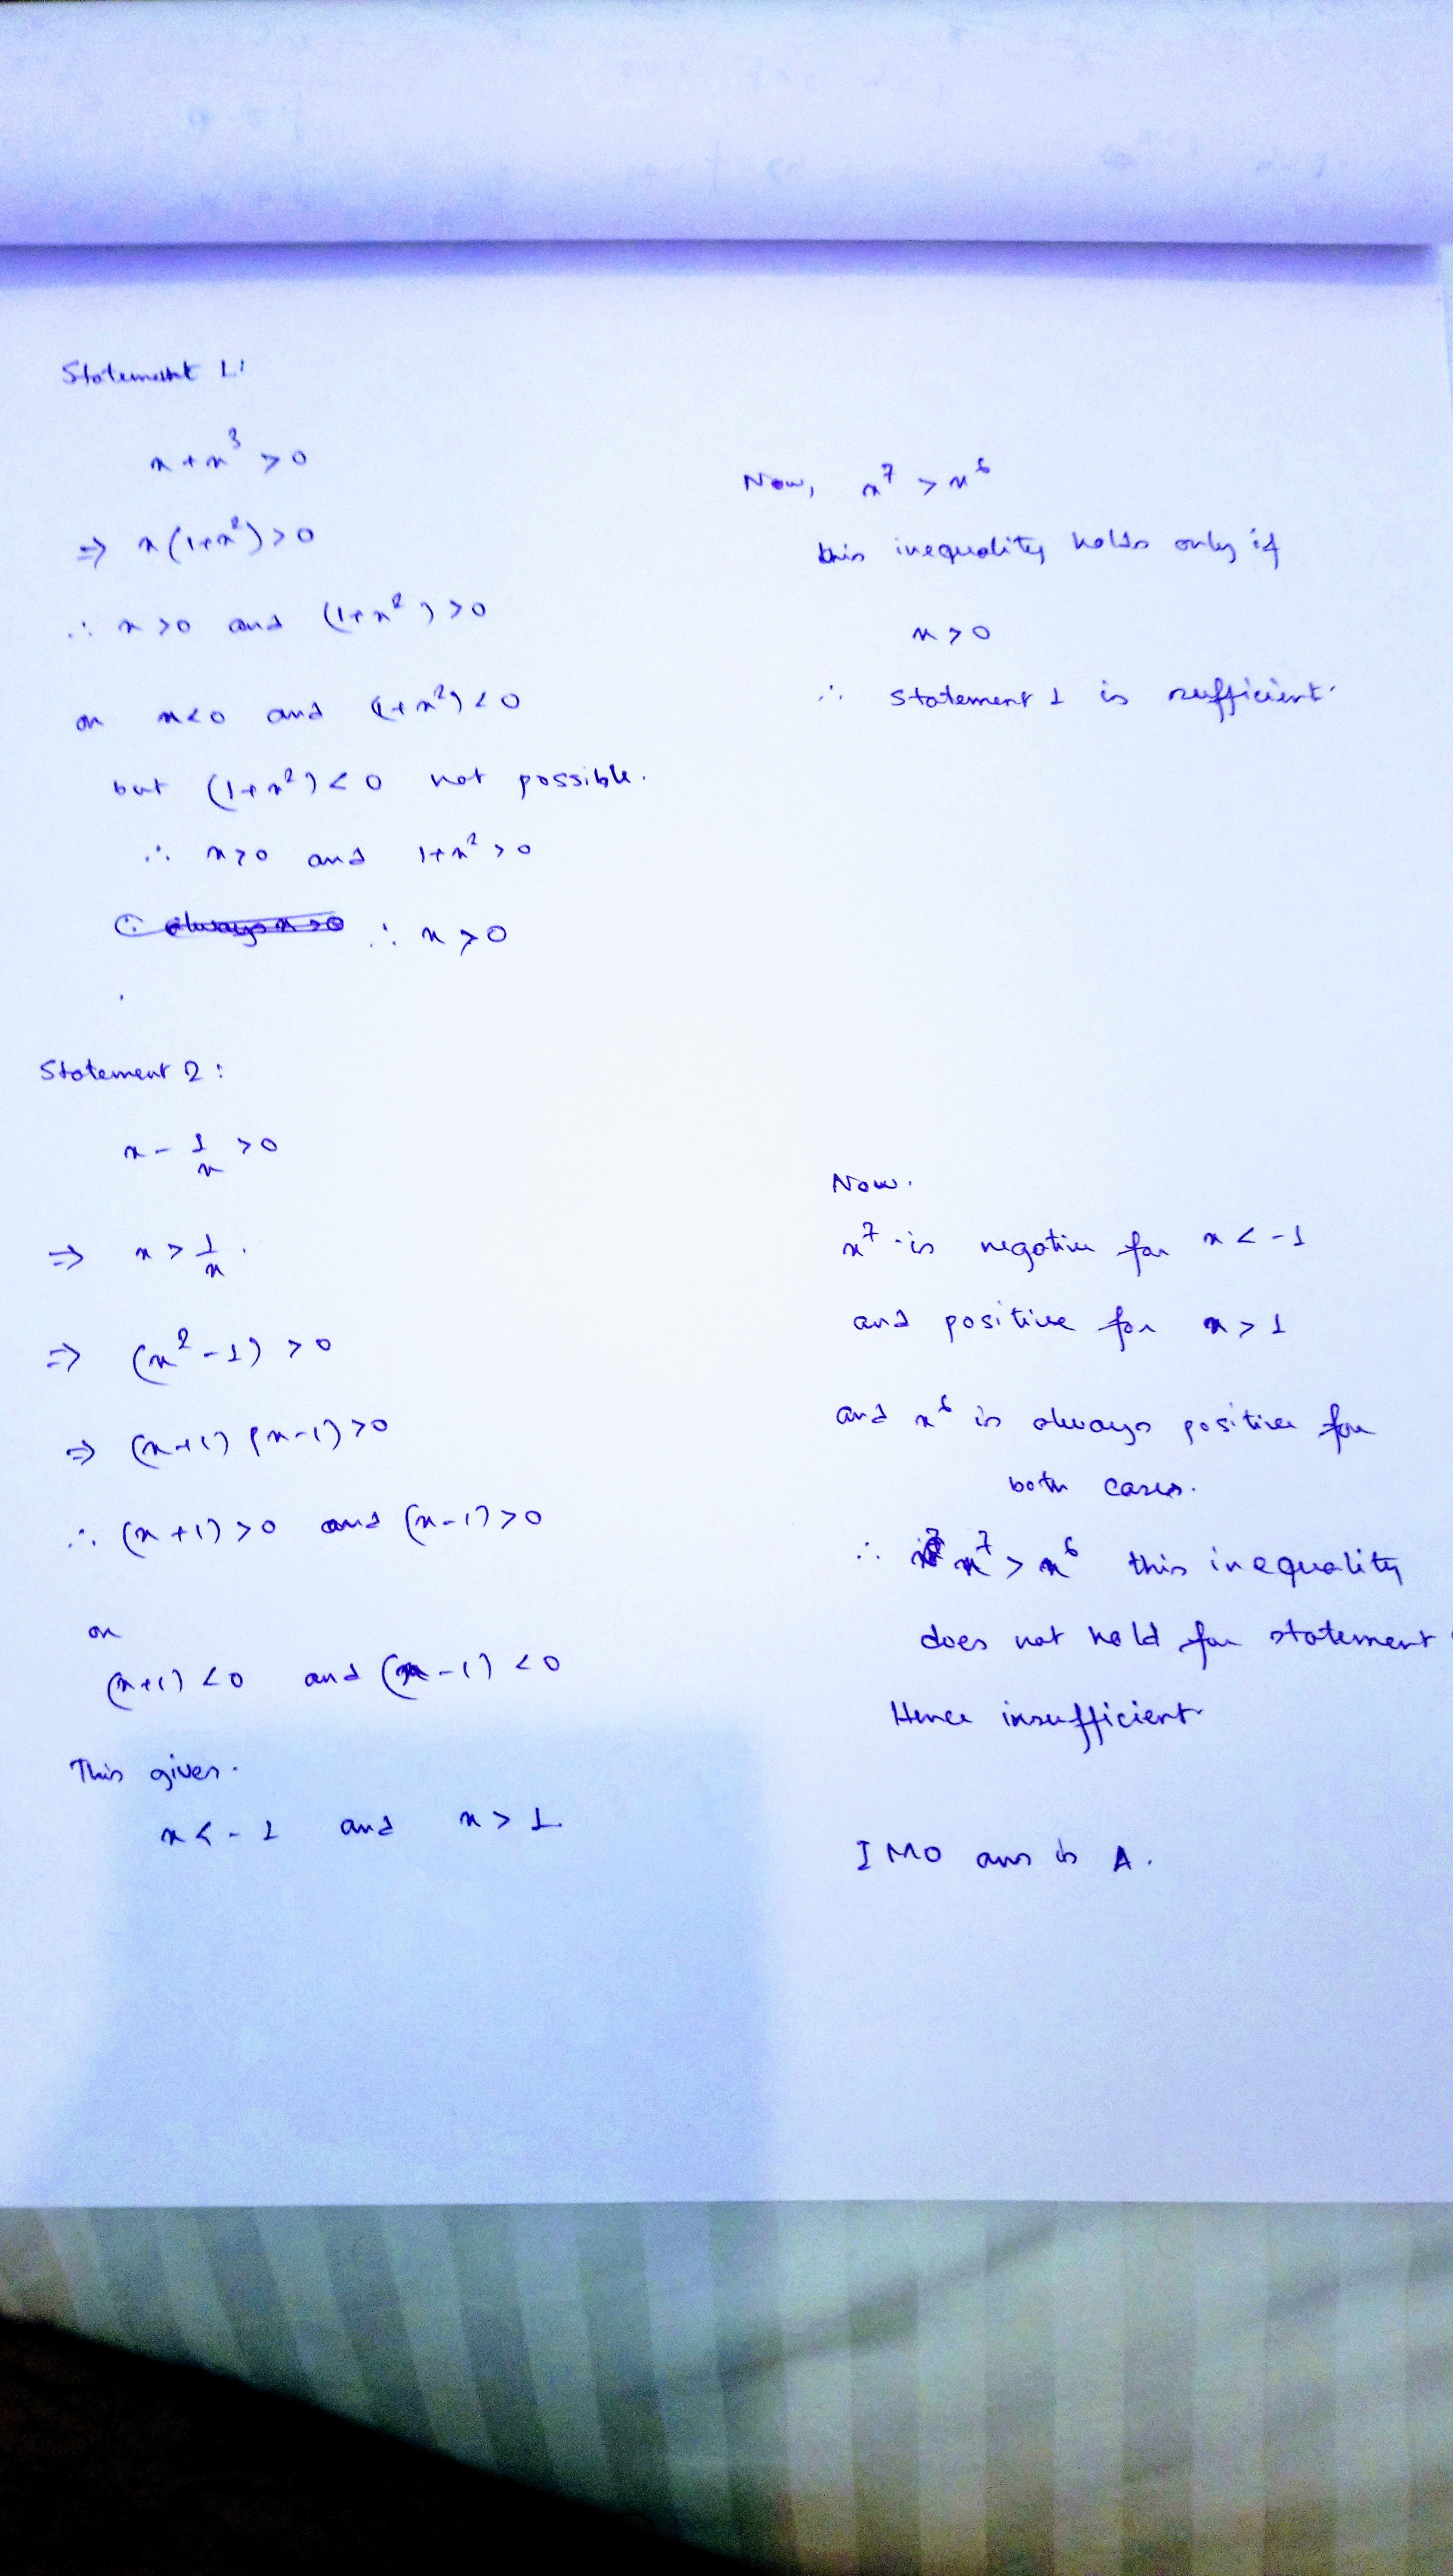 Statement 1:
x + x³ > 0
⇒ x(1+x²) > 0
∴ x > 0 and (1+x²) > 0
or x < 0 and (1+x²) < 0
but (1+x²) < 0 not possible.
∴ x > 0 and 1+x² > 0
∴ x > 0
Now, x⁷ > x⁶
this inequality holds only if
x > 0
∴ statement 1 is sufficient.
Statement 2:
x - 1/x > 0
⇒ x > 1/x.
⇒ (x² - 1) > 0
⇒ (x+1) (x-1) > 0
∴ (x+1) > 0 and (x-1) > 0
or
(x+1) < 0 and (x-1) < 0
This gives.
x < -1 and x > 1.
Now.
x⁷ is negative for x < -1
and positive for x > 1
and x⁶ is always positive for
both cases.
∴ x⁷ > x⁶ this inequality
does not hold for statement
Hence insufficient
IMO ans is A.